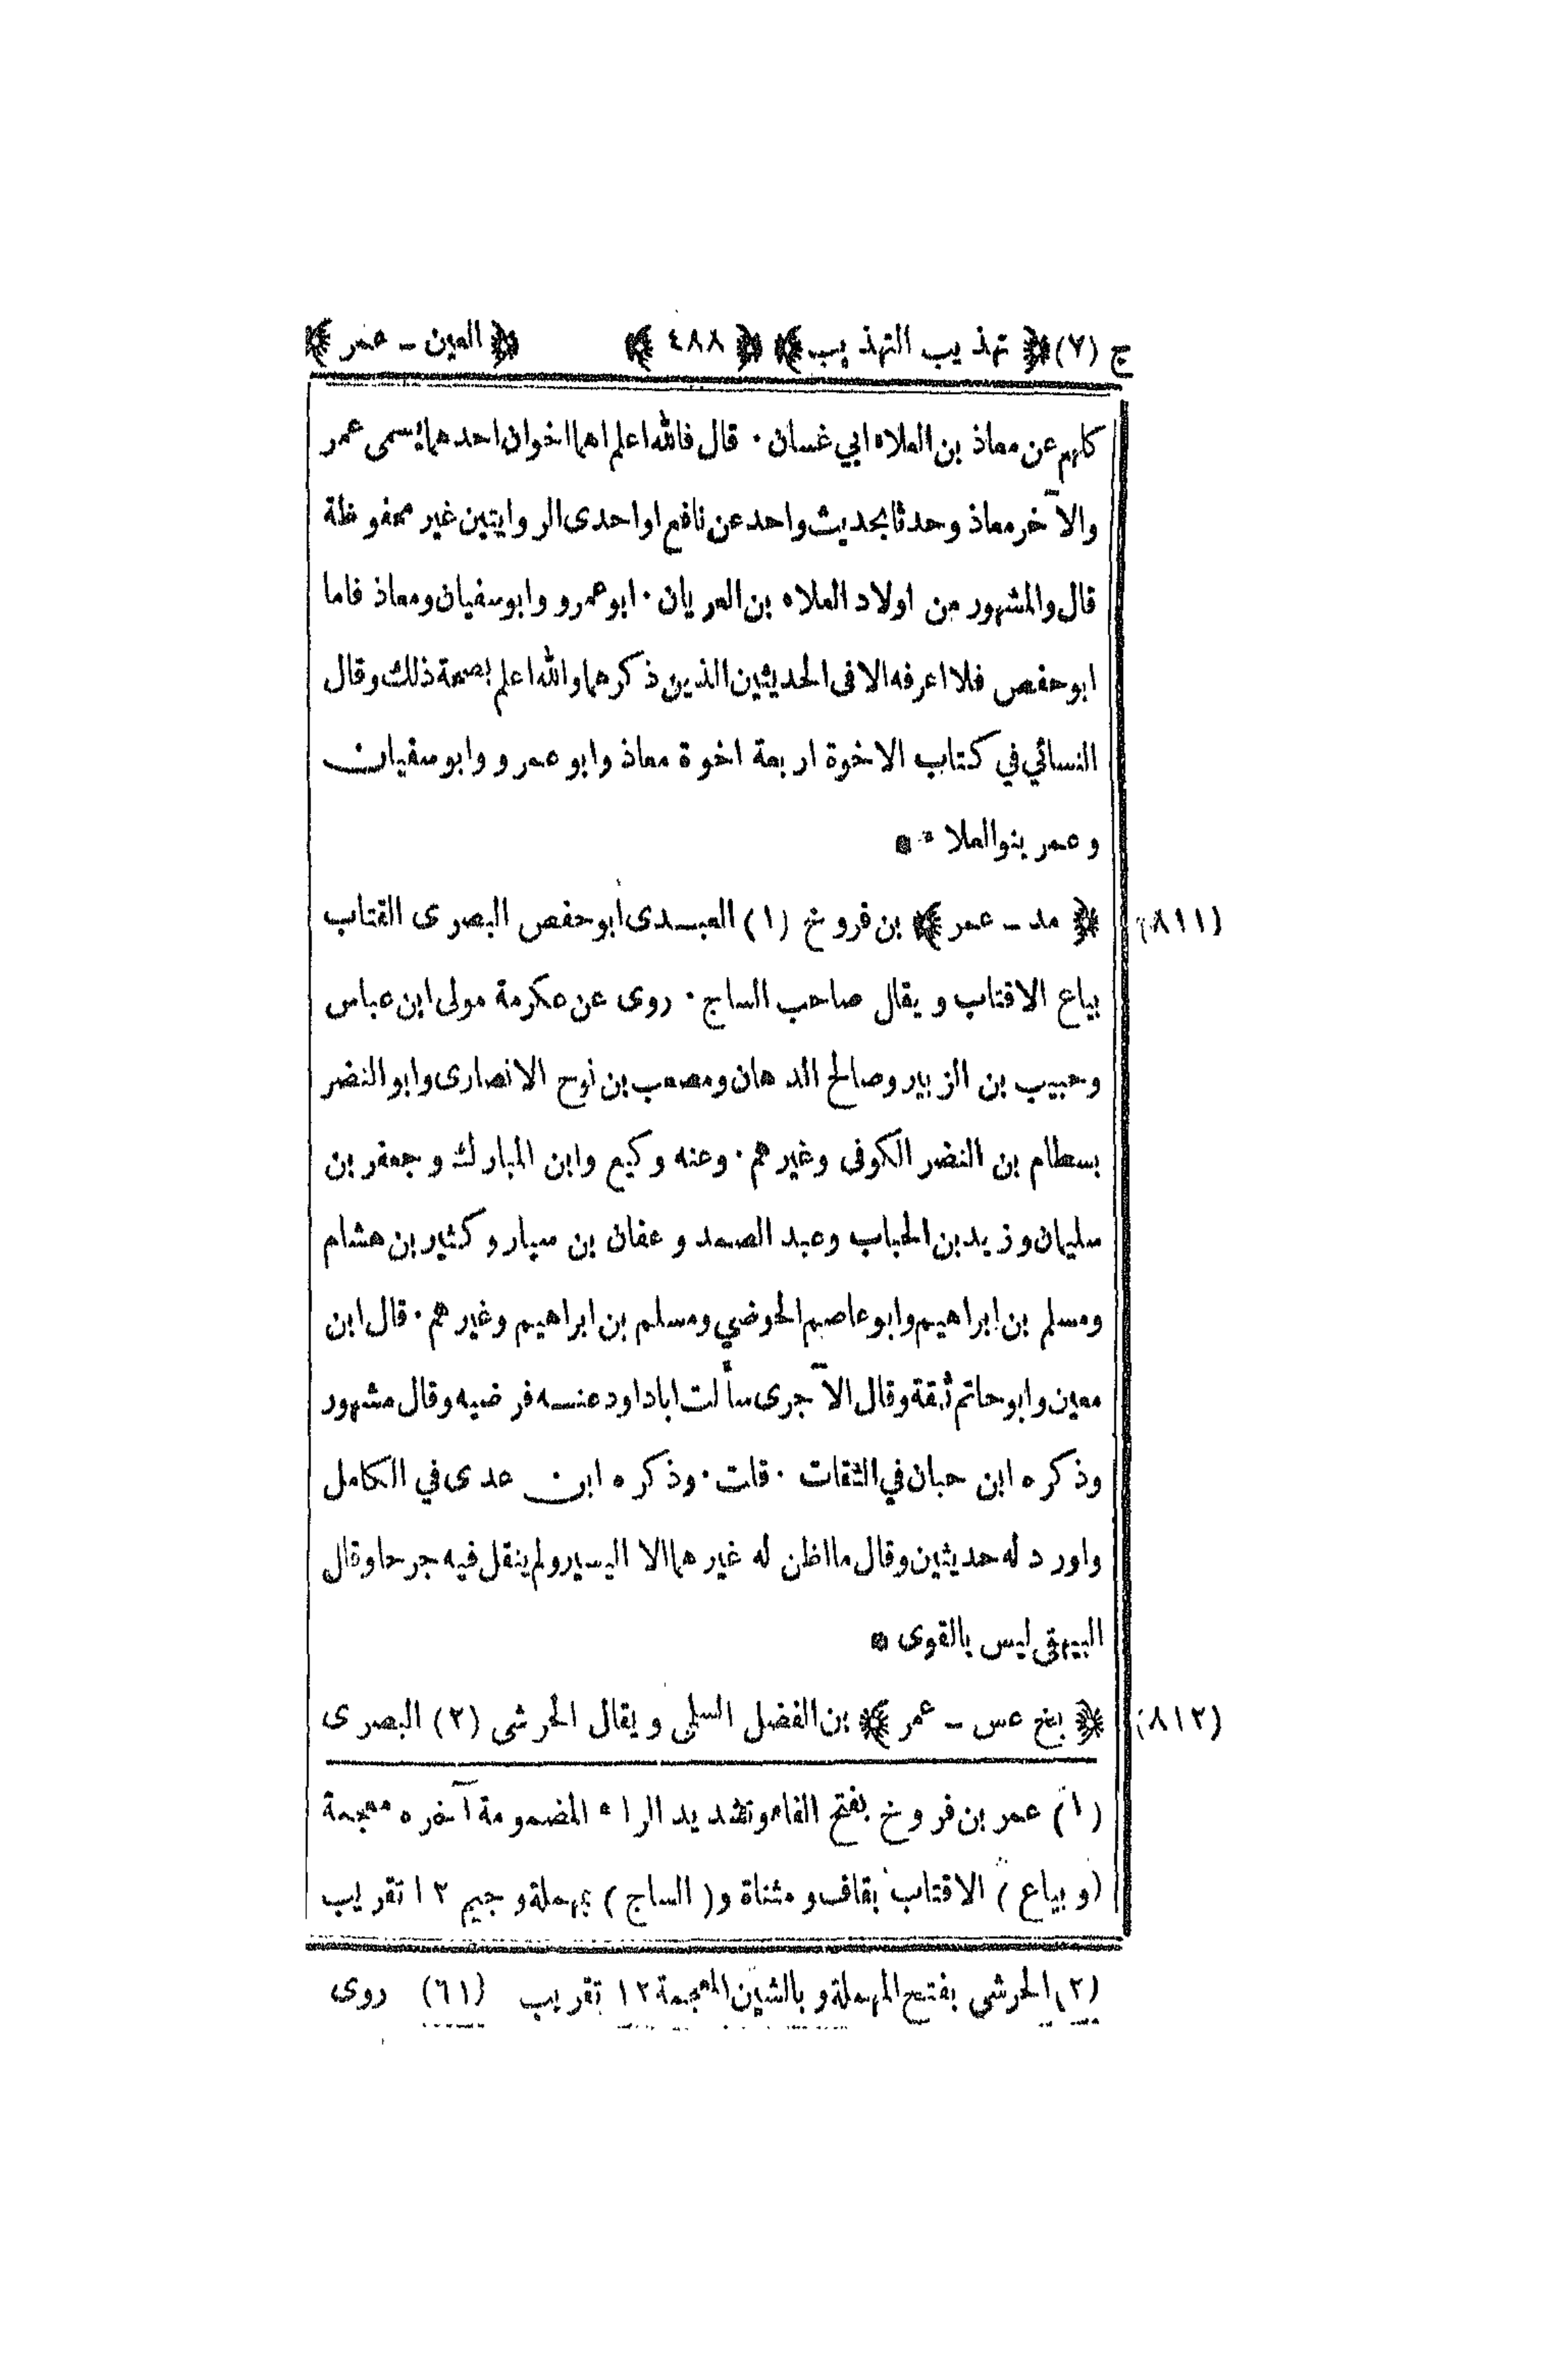 ج (٧) ﴿ تهذيب التهذيب ﴾ ﴿ ٤٨٨ ﴾ ﴿ العين ـ عمر ﴾
كلهم عن معاذ بن العلاء ابي غسان · قال فالله اعلم اهما اخوان احدهما يسمى عمر
والآخر معاذ وحدثا بحديث واحد عن نافع او احدى الروايتين غير محفوظة
قال والمشهور من اولاد العلاء بن العريان · ابو عمرو وابو سفيان ومعاذ فاما
ابو حفص فلا اعرفه الا فى الحديثين الذين ذكرهما والله اعلم بصحة ذلك وقال
النسائي في كتاب الاخوة اربعة اخوة معاذ وابو عمرو وابو سفيان
وعمر بنو العلاء *
(٨١١) ﴿ مد ـ عمر ﴾ بن فروخ (١) العبدى ابو حفص البصرى القتاب
بياع الاقتاب ويقال صاحب الساج · روى عن عكرمة مولى ابن عباس
وحبيب بن الزبير وصالح الدهان ومصعب بن نوح الانصارى وابو النضر
بسطام بن النضر الكوفى وغيرهم · وعنه وكيع وابن المبارك وجعفر بن
سليمان وزيد بن الحباب وعبد الصمد وعفان بن سيار وكثير بن هشام
ومسلم بن ابراهيم وابو عاصم الحوضي ومسلم بن ابراهيم وغيرهم · قال ابن
معين وابو حاتم ثقة وقال الآجرى سألت ابا داود عنه فرضيه وقال مشهور
وذكره ابن حبان في الثقات · قلت · وذكره ابن عدى في الكامل
واورد له حديثين وقال ما اظن له غيرهما الا اليسير ولم ينقل فيه جرحا وقال
البيهقى ليس بالقوى *
(٨١٢) ﴿ بخ عس ـ عمر ﴾ بن الفضل السلمى ويقال الحرشى (٢) البصرى
(١) عمر بن فروخ بفتح الفاء وتشديد الراء المضمومة آخره معجمة
(وبياع) الاقتاب بقاف ومثناة و(الساج) بمهملة وجيم ١٢ تقريب
(٢) الحرشى بفتح المهملة وبالشين المعجمة ١٢ تقريب (٦١) روى